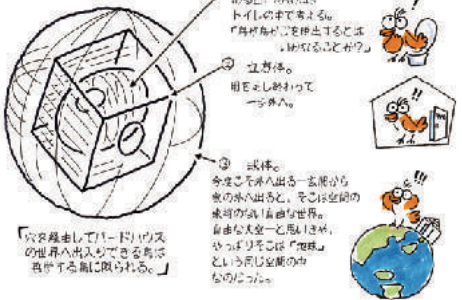 トイレの中で考える。
「鳥が鳥かごを脱出するとは
いかなることか?」
!
② 立方体。
用をたし終わって
一歩外へ。
!!
③ 球体。
今度こそ外へ出る—玄関から
家の外へ出ると、そこは空間の
自由な世界。
自由な大空—と思いきや、
やっぱりそこは「地球」
という同じ空間の中
なのだった。
!!!
「穴を経由してバードハウス
の世界へ出入りできる鳥は
する鳥に限られる。」